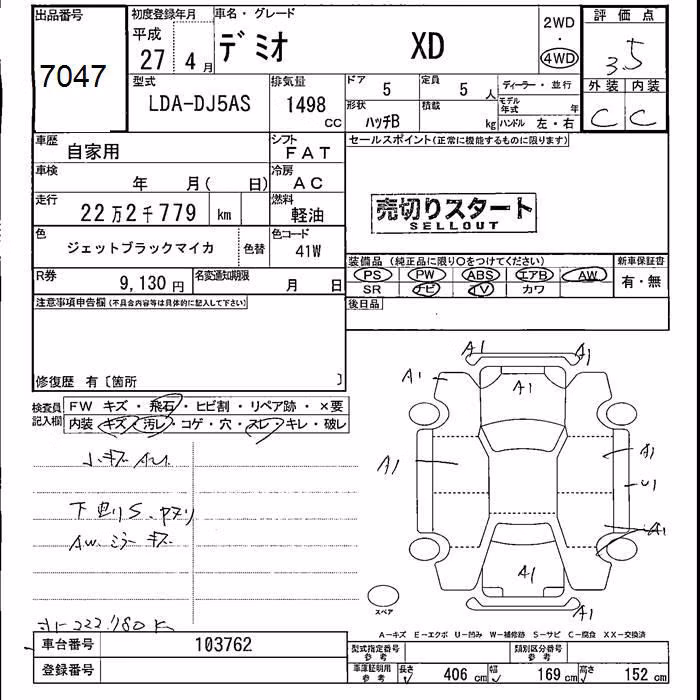 出品番号
7047
初度登録年月
平成
27 4 月
車名・グレード
デミオ XD
2WD
・
4WD
評価点
3.5
外装 内装
C C
型式
LDA-DJ5AS
排気量
1498 CC
ドア 5
定員 5 人
ディーラー・並行
形状 ハッチB
積載 kg
モデル年式 年
ハンドル 左・右
車歴 自家用
シフト FAT
セールスポイント(正常に機能するものに限ります)
車検 年 月( 日)
冷房 AC
走行 22万2千779 km
燃料 軽油
売切りスタート
SELLOUT
色 ジェットブラックマイカ 色替
色コード 41W
装備品(純正品に限り〇をつけてください)
新車保証書
PS PW ABS エアB AW
有・無
SR ナビ TV カワ
R券 9,130円
名変通知期限 月 日
後日品
注意事項申告欄(不具合内容等は具体的に記入して下さい)
修復歴 有〔箇所 〕
検査員記入欄
FW キズ・飛石・ヒビ割・リペア跡・×要
内装 キズ・汚レ・コゲ・穴・スレ・キレ・破レ
小キズ AU
下回りS.
AW.ミラーキズ
222.780K
A1 A1
A1 A1
A1 A1
U1
A1
A1
A1
スペア
A−キズ E−エクボ U−凹み W−補修跡 S−サビ C−腐食 XX−交換済
車台番号 103762
登録番号
型式指定番号 参考
類別区分番号 参考
車庫証明用 参考
長さ 406 cm 幅 169 cm 高さ 152 cm